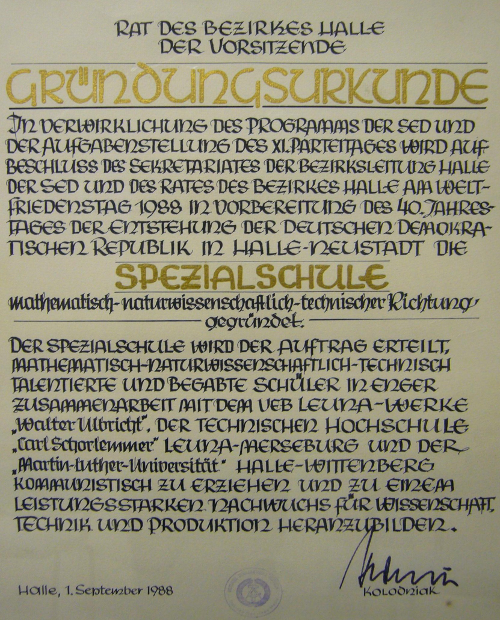 RAT DES BEZIRKES HALLE
DER VORSITZENDE
GRÜNDUNGSURKUNDE
IN VERWIRKLICHUNG DES PROGRAMMS DER SED UND
DER AUFGABENSTELLUNG DES XI. PARTEITAGES WIRD AUF
BESCHLUSS DES SEKRETARIATES DER BEZIRKSLEITUNG HALLE
DER SED UND DES RATES DES BEZIRKES HALLE AM WELT-
FRIEDENSTAG 1988 IN VORBEREITUNG DES 40. JAHRES-
TAGES DER ENTSTEHUNG DER DEUTSCHEN DEMOKRA-
TISCHEN REPUBLIK IN HALLE-NEUSTADT DIE
SPEZIALSCHULE
mathematisch-naturwissenschaftlich-technischer Richtung
gegründet.
DER SPEZIALSCHULE WIRD DER AUFTRAG ERTEILT,
MATHEMATISCH-NATURWISSENSCHAFTLICH-TECHNISCH
TALENTIERTE UND BEGABTE SCHÜLER IN ENGER
ZUSAMMENARBEIT MIT DEM VEB LEUNA-WERKE
„Walter Ulbricht", DER TECHNISCHEN HOCHSCHULE
„Carl Schorlemmer" LEUNA-MERSEBURG UND DER
„Martin-Luther-Universität" HALLE-WITTENBERG
KOMMUNISTISCH ZU ERZIEHEN UND ZU EINEM
LEISTUNGSSTARKEN NACHWUCHS FÜR WISSENSCHAFT,
TECHNIK UND PRODUKTION HERANZUBILDEN.
Halle, 1. September 1988
KOLODNIAK